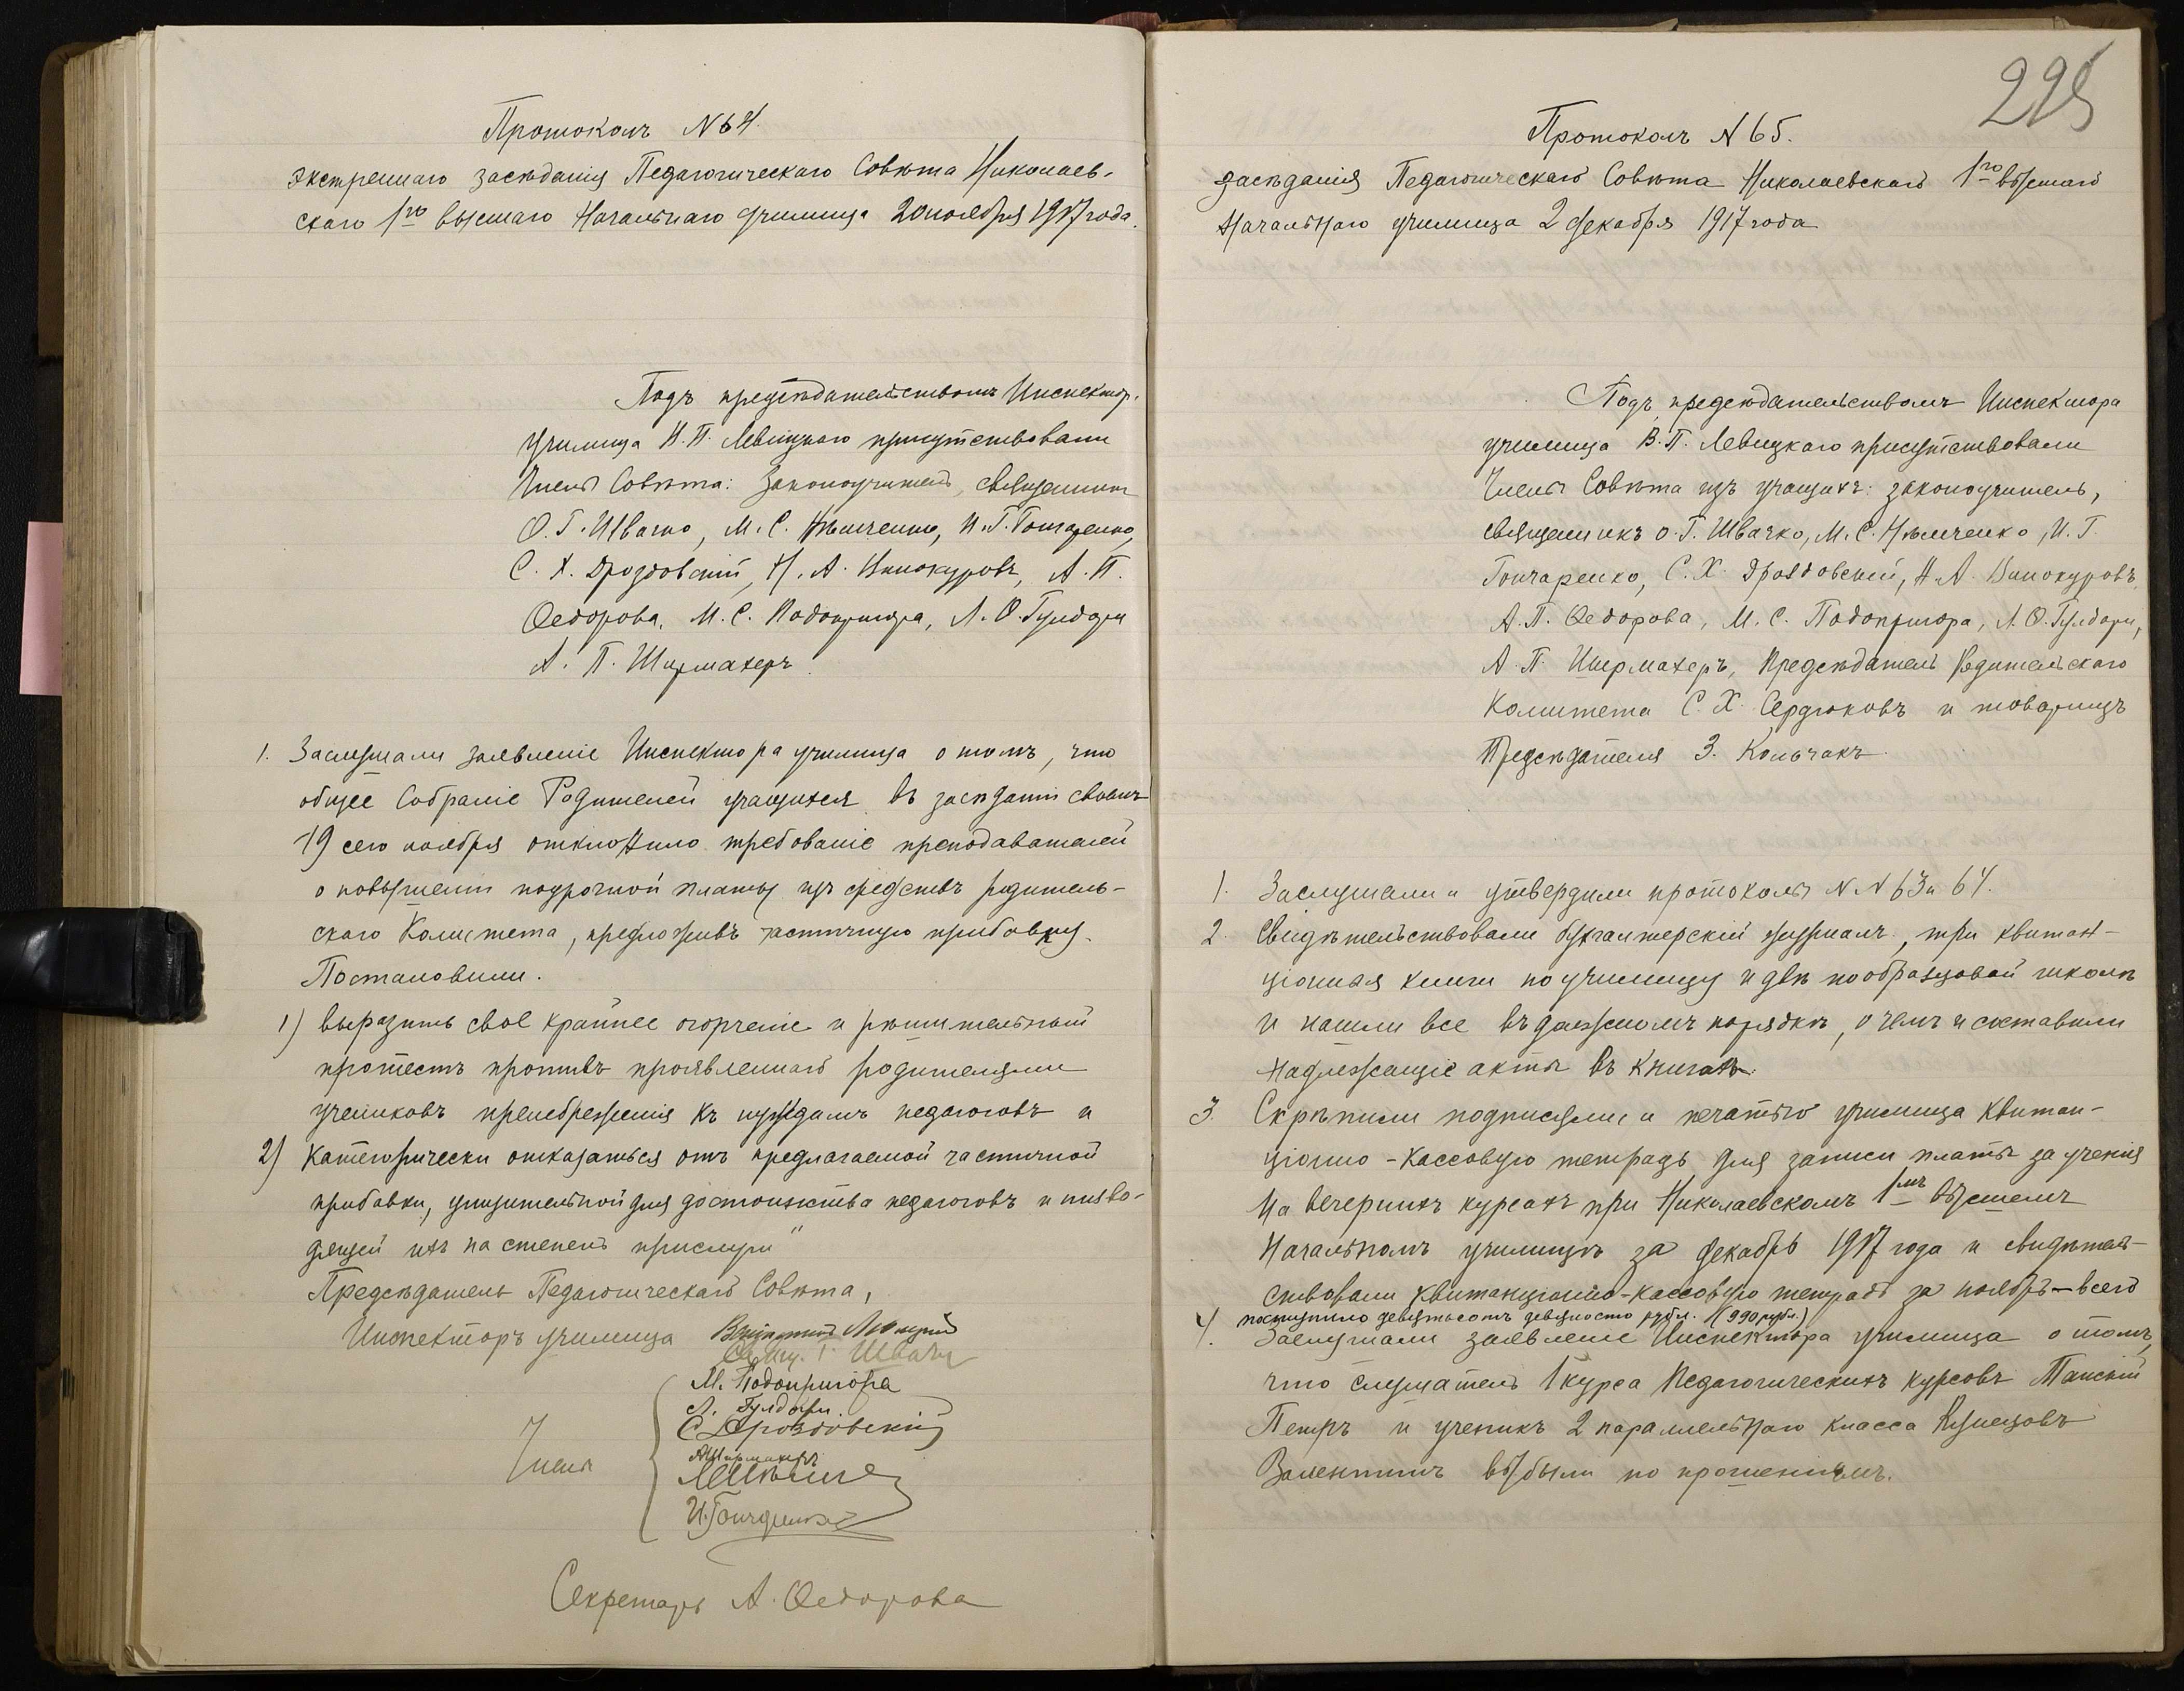 Протоколъ N 64.
экстреннаго засѣданія Педагогическаго Совѣта Николаев-
скаго 1го высшаго Начальнаго училища 20 ноября 1917 года.
Подъ предсѣдательствомъ Инспектор.
училища В. П. Левицкаго присутствовали
Члены Совѣта: Законоучитель, священникъ
О. Г. Швачко, М. С. Нѣмченко, И. Г. Гончаренко,
С. Х. Дроздовскій, Н. А. Винокуровъ, А. П.
Ѳедорова, М. С. Подопригора, Л. Ѳ. Гулдари
А. П. Ширмахеръ.
1. Заслушали заявленіе Инспектора училища о томъ, что
общее Собраніе Родителей учащихся въ засѣданіи своемъ
19 сего ноября отклонило требованіе преподавателей
о повышеніи поурочной платы изъ средствъ родитель-
скаго Комитета, предложивъ частичную прибавку.
Постановили.
1) выразить свое крайнее огорченіе и рѣшительный
протестъ противъ проявленнаго родителями
учениковъ пренебреженія къ нуждамъ педагоговъ и
2) Категорически отказаться отъ предлагаемой частичной
прибавки, унизительной для достоинства педагоговъ и низво-
дящей ихъ на степень прислуги"
Предсѣдатель Педагогическаго Совѣта,
Инспекторъ училища
Свящ. Г. Швачко
М. Подопригора
Л. Гулдари.
С. Дроздовскій
Члены
АШирмахеръ
И. Гончаренко
Секретарь А. Ѳедорова
295
Протоколъ N 65.
засѣданія Педагогическаго Совѣта Николаевскаго 1го высшаго
Начальнаго училища 2 декабря 1917 года
Подъ предсѣдательствомъ Инспектора
училища В. П. Левицкаго присутствовали
Члены Совѣта изъ учащихъ: законоучитель,
священникъ о. Г. Швачко, М. С. Нѣмченко, И. Г.
Гончаренко, С. Х. Дроздовскій, Н. А. Винокуровъ,
А. П. Ѳедорова, М. С. Подопригора, Л. Ѳ. Гулдари,
А. П. Ширмахеръ, Предсѣдатель Родительскаго
Комитета С. Х. Сердюковъ и товарищъ
Предсѣдателя З. Кольчакъ.
1. Заслушали и утвердили протоколы N N 63 и 64.
2. Свидѣтельствовали бухгалтерскій журналъ, три квитан-
ціонныя книги по училищу и двѣ по образцовой школѣ
и нашли все въ должномъ порядкѣ, о чемъ и составили
надлежащіе акты въ книгахъ.
3. Скрѣпили подписями и печатью училища квитан-
ціонно-кассовую тетрадь для записи платы за ученія
на вечернихъ курсахъ при Николаевскомъ 1мъ высшемъ
Начальномъ училищѣ за декабрь 1917 года и свидѣтель-
ствовали квитанціонно-кассовую тетрадь за ноябрь — всего
поступило девятьсотъ девяносто рубл. (990 рубл.)
4. Заслушали заявленіе Инспектора училища о томъ,
что слушатель 1 курса Педагогическихъ курсовъ Панскій
Петръ и ученикъ 2 параллельнаго класса Кузнецовъ
Валентинъ выбыли по прошеніямъ.